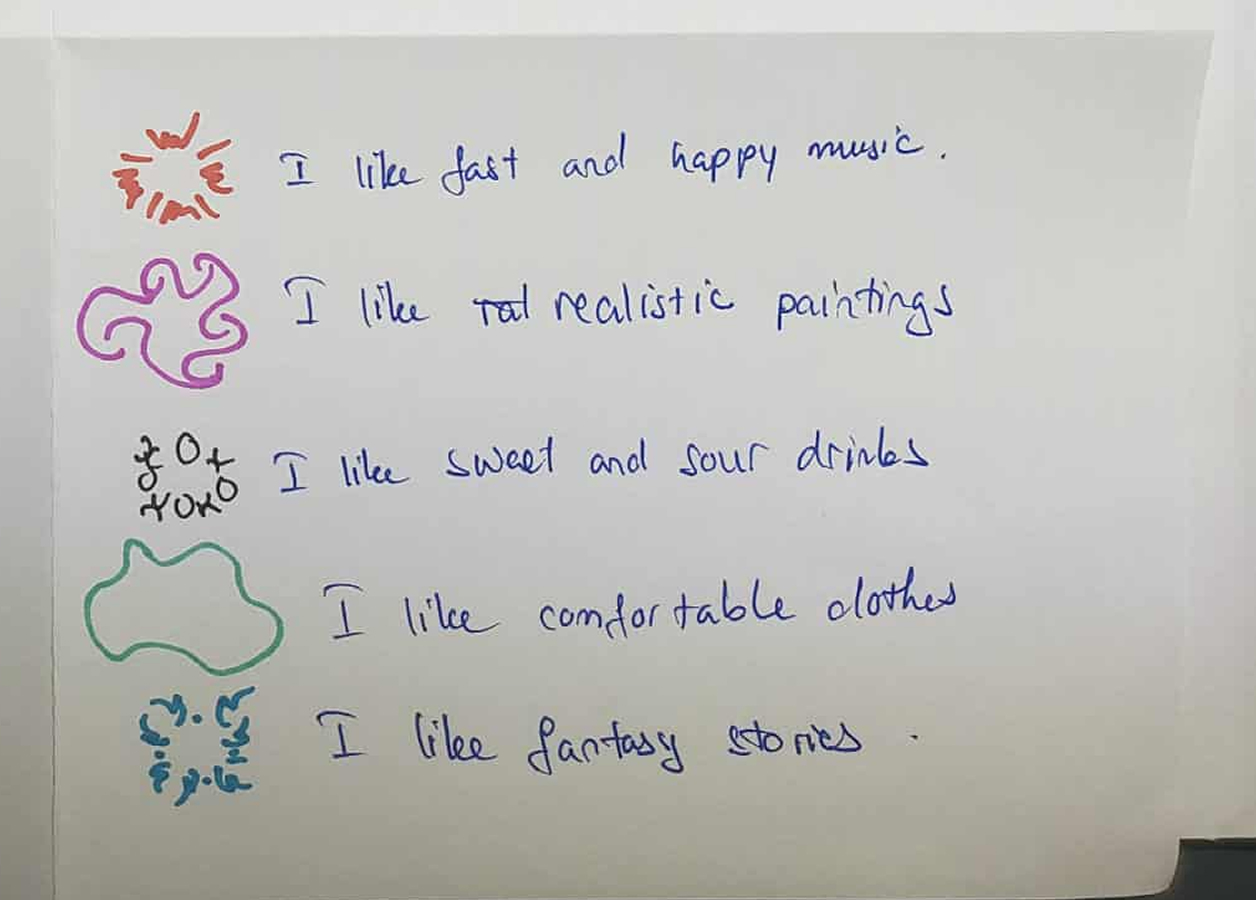 I like fast and happy music.
I like realistic paintings
I like sweet and sour drinks
I like comfortable clothes
I like fantasy stories.